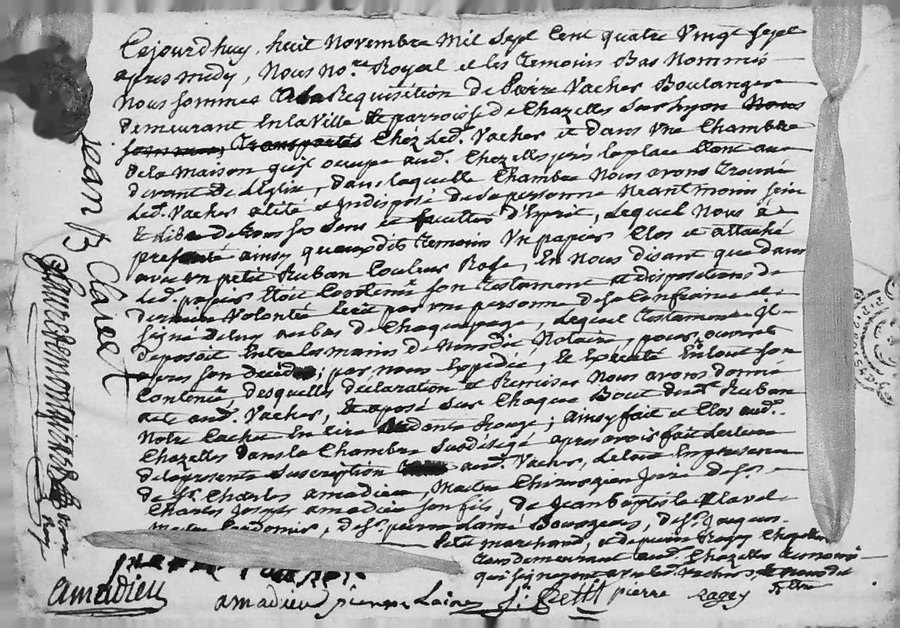 Cejourdhuy, huit Novembre Mil Sept Cent quatre Vingt Sept
apres midy, Nous no.re Royal et les temoins Bas Nommés
Nous sommes a la Requisition de Pierre Vacher Boulanger
demeurant En la Ville et parroisse de Chazelles sur lyon Nous
sommes, Transportés Chéz Led. Vacher et dans Une Chambre
de la Maison qu'il occupe aud. Chazelles près la place Etant au
devant de L'Eglise, dans laquelle Chambre Nous avons trouvé
Led. Vacher alité et Indisposé de sa personne Neantmoins sain
Et libre de tous ses Sens et facultés d'Esprit, Lequel Nous a
présenté ainsy quauxdits temoins Un papier Clos et attaché
avec un petit Ruban Couleur Rose, En Nous disant que dans
Led. papier Etoit Contenu son testament et dispositions de
derniere Volonté Ecrit par une personne de sa Confiance et
signé de luy au bas de Chaque page, Lequel testament Il
deposoit Entre les mains de Nousdit Notaire, pour, ouvert
apres son decéds, par nous Expedié, Et Executé En tout son
Contenu, desquelles declaration et Remises Nous avons donné
acte aud. Vacher, Et aposé sur Chaque Bout dud. Ruban
Notre Cachet En Cire ardante Rouge; ainsy fait et Clos aud.
Chazelles dans la Chambre Susdésigé apres avoir fait Lecture
de la presente suscription aud. Vacher, de luy En presence
de Sr. Charles amadieu, Maitre Chirurgien Juré de Sr.
Charles Joseph amadieu son fils, de Jean Baptiste Clavel
de Sr. pierre Lainé Bourgeois, de Sr. Jacques
Petit marchand, et de pierre Ragey Chapelier
tous demeurant aud. Chazelles temoins
qui signeront avec led. Vacher,
Jean B Clavel
amadieu
amadieu pierre Lainé J. Petit pierre ragey